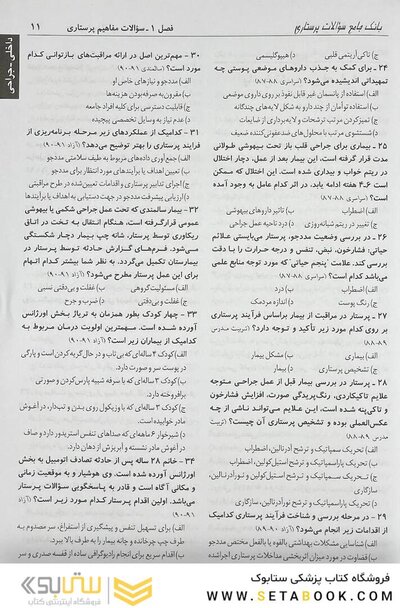 بانک جامع سؤالات پرستاری
فصل ۱ ـ سؤالات مفاهیم پرستاری
۱۱
داخلی ـ جراحی
ج) تاکی آریتمی قلبی
د) هیپوگلیسمی
۲۴ ـ برای کمک به جذب داروهای موضعی پوستی چه
تمهیداتی اندیشیده می‌شود؟ (سراسری ۸۸-۸۷)
الف) استفاده از پانسمان غیر قابل نفوذ بر روی داروی موضعی
ب) استفاده توأمان از چند دارو به شکل لایه‌های چندگانه
ج) تمیز کردن مرتب ترشحات و لایه‌برداری از ضایعات
د) شستشوی مرتب با محلول‌های ضدعفونی کننده ضعیف
۲۵ ـ بیماری برای جراحی قلب باز تحت بیهوشی طولانی
مدت قرار گرفته است، این بیمار بعد از عمل، دچار اختلال
در ریتم خواب و بیداری شده است. این اختلال که ممکن
است ۶ـ۴ هفته ادامه یابد، در اثر کدام عامل به وجود آمده
است؟ (سراسری ۸۸-۸۷)
الف) اضطراب
ب) تاثیر داروهای بیهوشی
ج) تغییر در ریتم شبانه‌روزی
د) درد ناحیه عمل جراحی
۲۶ ـ در بررسی وضعیت مددجو، پرستار می‌بایستی علائم
حیاتی، فشارخون، نبض، تنفس و درجه حرارت را با دقت
بررسی کند. علامت "پنجم حیاتی" که مورد توجه منابع علمی
می‌باشد کدام است؟ (سراسری ۸۸-۸۷)
الف) اضطراب
ب) درد
ج) رنگ پوست
د) اندازه مردمک
۲۷ ـ پرستار در مراقبت از بیمار براساس فرآیند پرستاری
بر روی کدام مورد زیر تأکید و توجه دارد؟ (تربیت مدرس
۸۹-۸۸)
الف) بیماری
ب) مشکل بیمار
ج) تشخیص پرستاری
د) بیمار
۲۸ ـ پرستار در بررسی بیمار قبل از عمل جراحی متوجه
علایم تاکیکاردی، رنگ‌پریدگی صورت، افزایش فشارخون
و تاکی‌پنه شده است، این علایم می‌تواند ناشی از چه
عکس‌العملی بوده و تشخیص پرستاری آن چیست؟ (تربیت
مدرس ۸۹-۸۸)
الف) تحریک سمپاتیک و ترشح آدرنالین، اضطراب
ب) تحریک پاراسمپاتیک و ترشح استیل‌کولین، اضطراب
ج) تحریک پاراسمپاتیک و ترشح استیل‌کولین و آدرنالین،
سازگاری
د) تحریک پاراسمپاتیک و ترشح نورآدرنالین، سازگاری
۲۹ ـ در مرحله بررسی و شناخت فرآیند پرستاری کدامیک
از اقدامات زیر انجام می‌شود؟ (آزاد ۹۰-۸۹)
الف) شناسایی مشکلات بهداشتی بالقوه یا بالفعل مختص مددجو
ب) قضاوت در مورد میزان اثربخشی مداخلات پرستاری اجرا شده
۳۰ ـ مهم‌ترین اصل در ارائه مراقبت‌های بازتوانی کدام
مورد است؟ (سالمندی ۹۱-۹۰)
الف) مددجو و نیازهای خاص او
ب) مقرون به صرفه بودن هزینه‌ها
ج) قابلیت دسترسی برای کلیه افراد جامعه
د) عدم نیاز به وسایل تخصصی پیچیده
۳۱ ـ کدامیک از عملکردهای زیر مرحله برنامه‌ریزی از
فرایند پرستاری را بهتر توضیح می‌دهد؟ (آزاد ۹۱-۹۰)
الف) جمع‌آوری داده‌های مربوط به طیف سلامتی مددجو
ب) تعیین اهداف یا برآیندهای مورد انتظار برای مددجو
ج) اجرای تدابیر پرستاری و اقدامات تعیین شده در طرح مراقبتی
د) ارزیابی پیشرفت مددجو در جهت دستیابی به اهداف یا برآیندها
۳۲ ـ بیمار سالمندی که تحت عمل جراحی شکمی با بیهوشی
عمومی قرار گرفته است، هنگام انتقال به تخت در اتاق
ریکاوری توسط پرستار، شانه چپ بیمار دچار شکستگی
می‌شود. فرم‌های گزارش حادثه توسط پرستار در
بیمارستان تکمیل می‌گردد. به نظر شما بیشتر کدام اتهام
برای این عمل پرستار مطرح می‌شود؟ (آزاد ۹۱-۹۰)
الف) غفلت و بی‌دقتی
ب) مسئولیت گروهی
ج) غفلت و بی‌دقتی نسبی
د) ضرب و جرح
۳۳ ـ چهار کودک بطور همزمان به تریاژ بخش اورژانس
آورده شده است. مهمترین اولویت درمان مربوط به
کدامیک از بیماران زیر است؟ (آزاد ۹۱-۹۰)
الف) کودک ۲ ساله‌ای که بی‌تاب و در حال گریه کردن است و پارگی
در پوست سر و صورت دارد.
ب) کودک ۳ ساله‌ای که با سرفه شبیه پارس کردن و صورتی
برافروخته دارد.
ج) کودک ۳ ساله‌ای که با زیکول روی بدن و تب‌دار، در آغوش
مادر خوابیده است.
د) شیرخوار ۶ ماهه‌ای که صداهای تنفس استریدور دارد و صاف
در آغوش مادر نشسته و آبریزش از دهان دارد.
۳۴ ـ خانم ۲۸ ساله پس از حادثه تصادف اتومبیل به بخش
اورژانس آورده شده است. وی هوشیار و به موقعیت زمانی
و مکانی آگاه است و قادر به پاسخگویی سؤالات پرستار
می‌باشد. اولین اقدام پرستار کدام مورد زیر است؟ (آزاد
۹۱-۹۰)
الف) برای تسهیل تنفس و پیشگیری از استفراغ، سر مصدوم به
طرف چپ چرخانده و چانه بیمار را به طرف بالا ببرد.
ب) اقدام سریع برای انجام رادیوگرافی ساده از قفسه صدری و سر
فروشگاه کتاب پزشکی ستابوک
WWW.SETABOOK.COM
ستابوک
فروشگاه اینترنتی کتاب